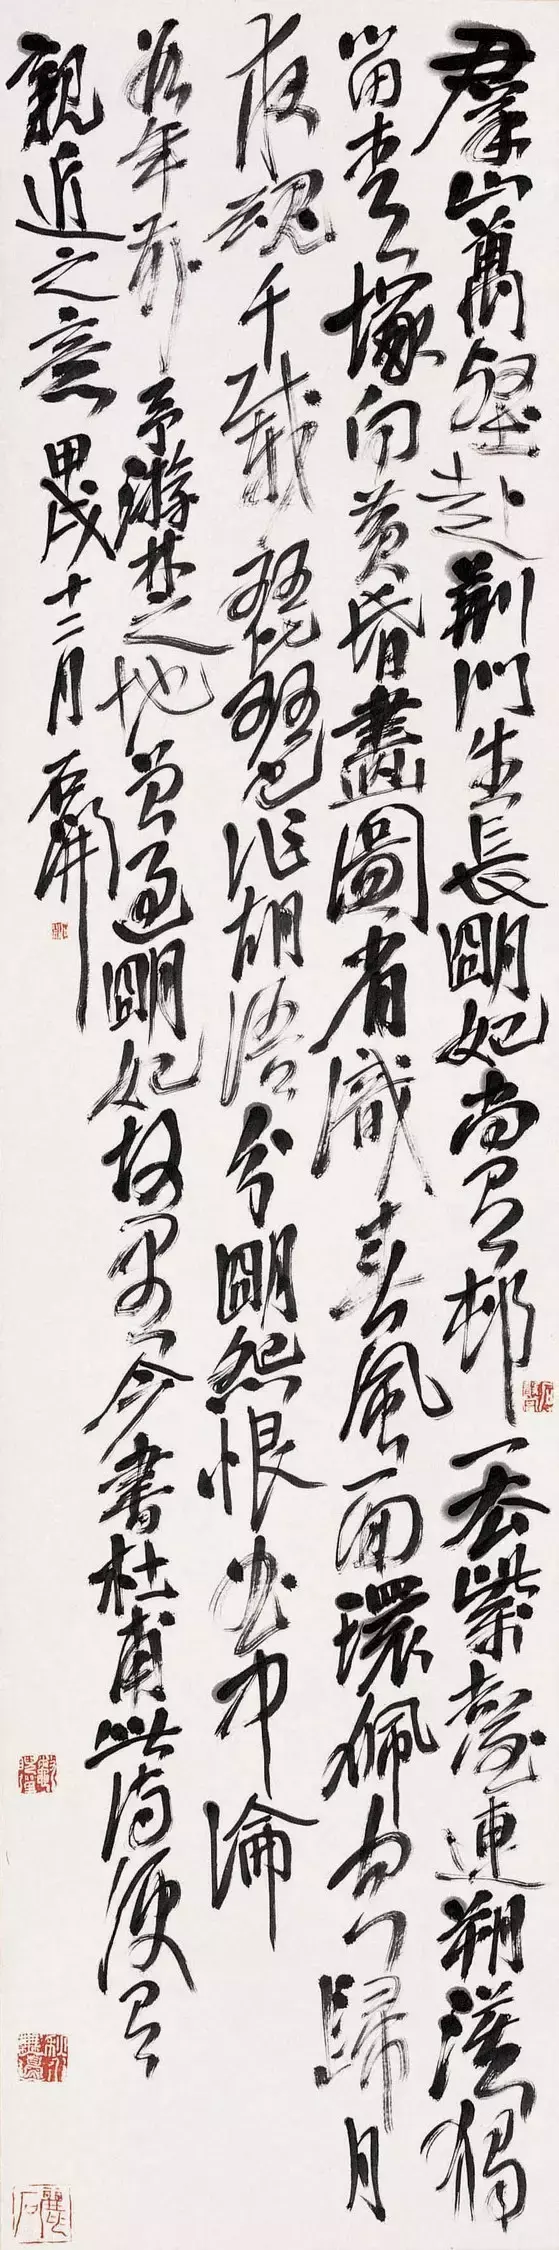 羣山萬壑赴荆門生長朙妃尚有邨一去紫臺連朔漠獨
留青塚向黃昏畫圖省識春風面環佩空歸月
夜魂千載琵琶作胡語分朙怨恨曲中論
拾年前予游楚之地曾過朙妃故里今書杜甫此詩便有
親近之意甲戌十二月石開